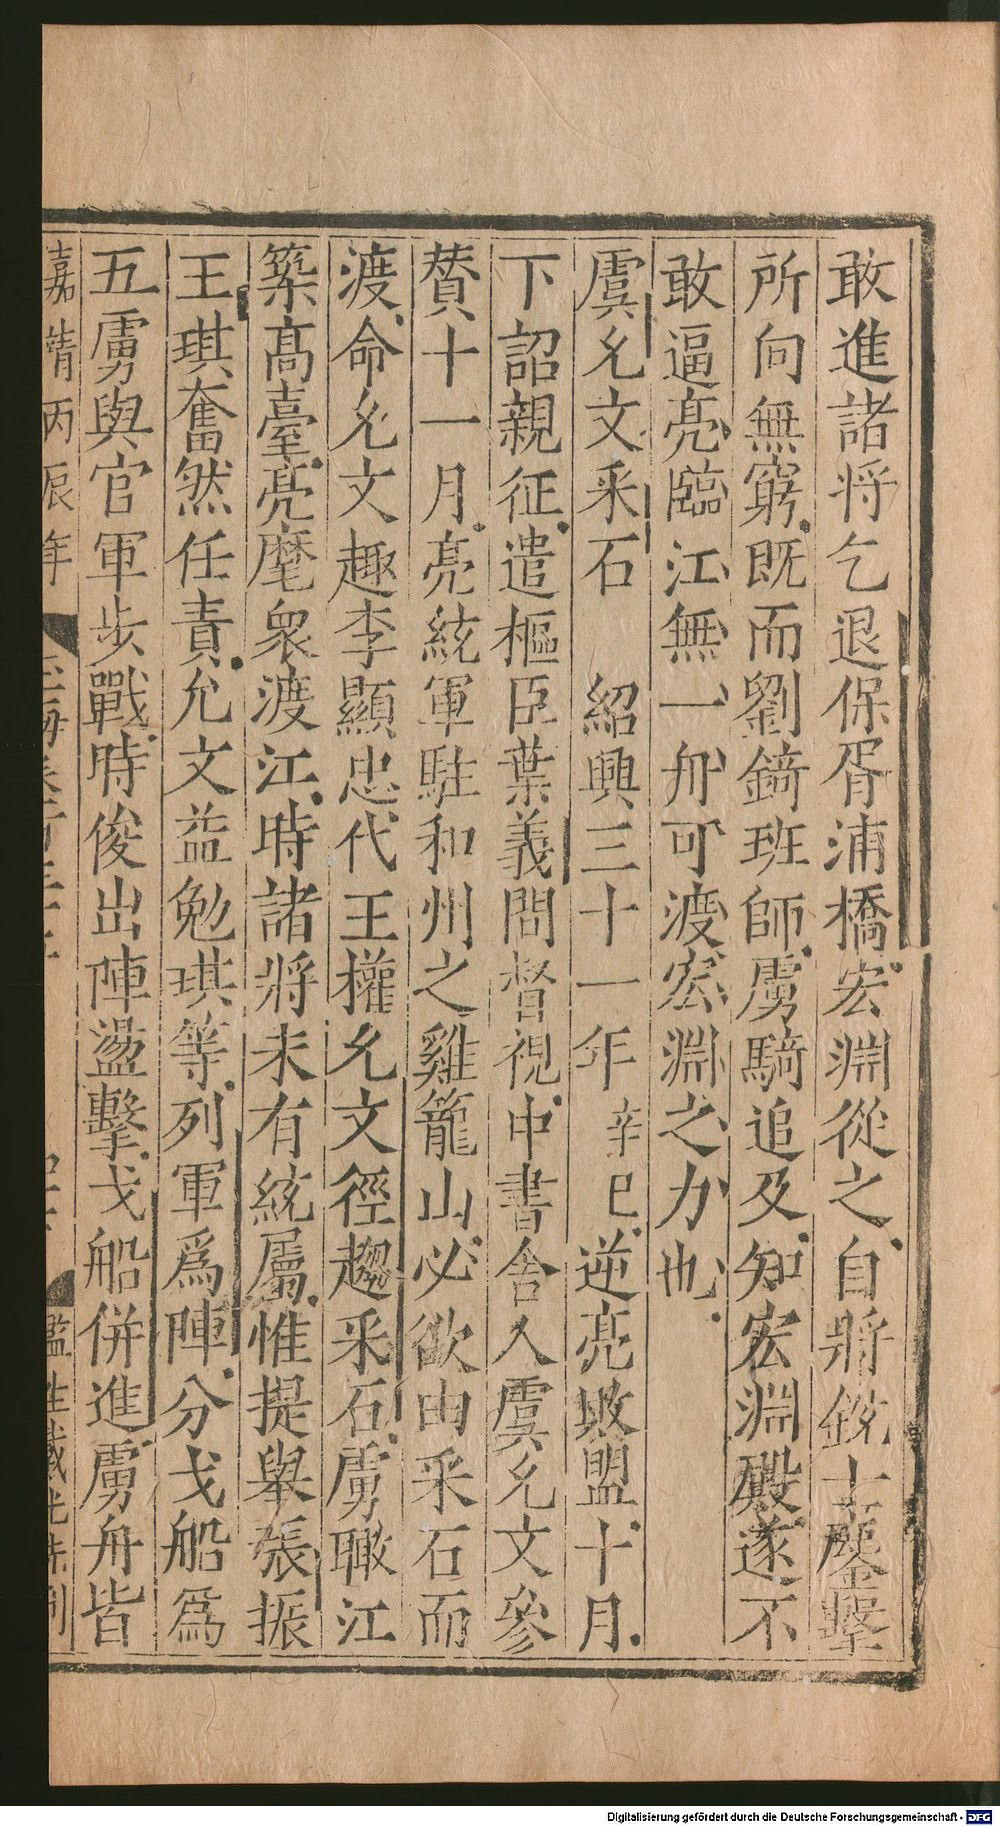 敢進諸将乞退保胥浦橋宏淵從之自將銳士鏖擊
所向無窮既而劉錡班師虜騎追及知宏淵殿遂不
敢逼亮臨江無一舟可渡宏淵之力也
虞允文采石　紹興三十一年辛巳逆亮敗盟十月
下詔親征遣樞臣葉義問督視中書舍人虞允文參
賛十一月亮統軍駐和州之雞籠山必欲由采石而
渡命允文趣李顯忠代王權允文徑趨采石虜瞰江
築髙臺亮麾衆渡江時諸將未有統屬惟提舉張振
王琪奮然任責允文益勉琪等列軍爲陣分戈船爲
五虜與官軍步戰時俊出陣盪擊戈船併進虜舟皆
嘉靖丙辰年
玉海卷百
監生戴光
Digitalisierung gefördert durch die Deutsche Forschungsgemeinschaft - DFG